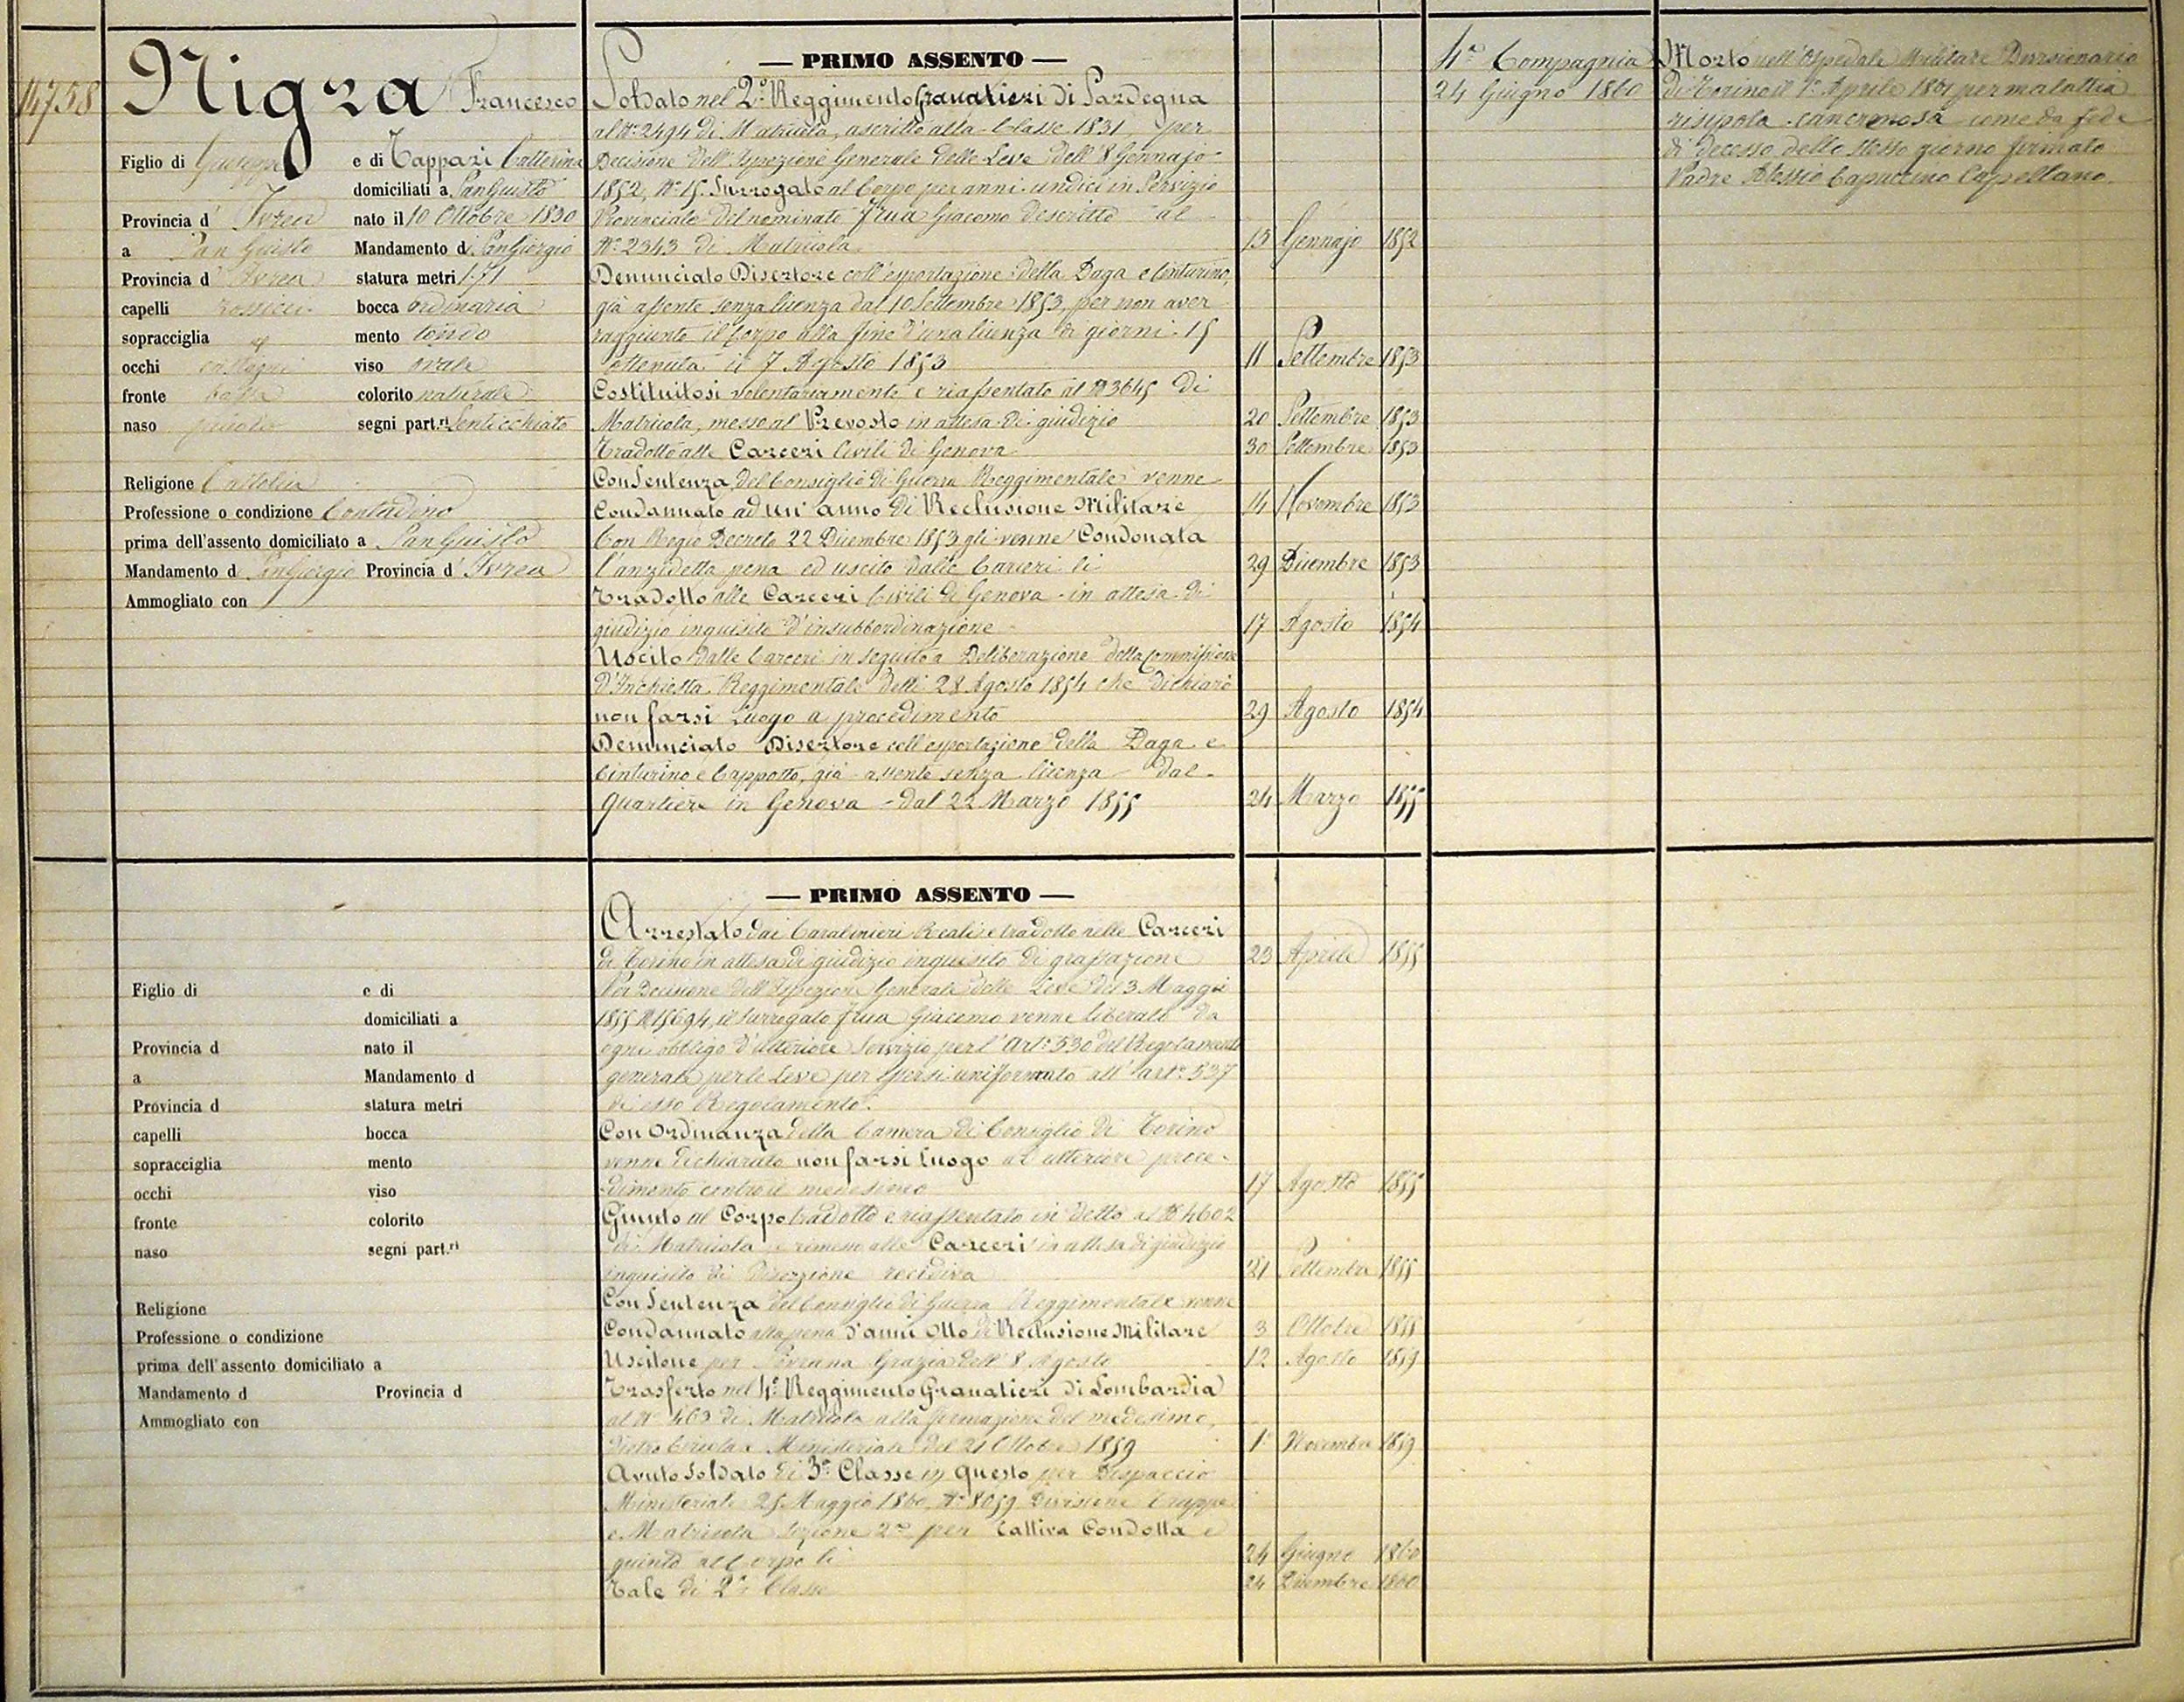 14758
Nigra Francesco
Figlio di Giuseppe e di Tappari Catterina
domiciliati a San Giusto
Provincia d' Ivrea nato il 10 Ottobre 1830
a San Giusto Mandamento di San Giorgio
Provincia d' Ivrea statura metri 1.71
capelli rossicci bocca ordinaria
sopracciglia mento tondo
occhi castagni viso ovale
fronte bassa colorito naturale
naso piccolo segni part.ri Lenticchiato
Religione Cattolica
Professione o condizione Contadino
prima dell'assento domiciliato a San Giusto
Mandamento di San Giorgio Provincia d' Ivrea
Ammogliato con /
— PRIMO ASSENTO —
Soldato nel 2º Reggimento Granatieri di Sardegna
al Nº 2494 di Matricola, ascritto alla Classe 1831, per
Decisione dell'Ispezione Generale delle Leve dell' 8 Gennajo
1852, Nº 15. Surrogato al Corpo per anni undici in Servizio
Provinciale del nominato Frua Giacomo descritto al
Nº 2343 di Matricola 13 Gennajo 1852
Denunciato Disertore coll'esportazione della Daga e Cinturino,
già assente senza licenza dal 10 Settembre 1853, per non aver
raggiunto il Corpo alla fine d'una licenza di giorni 15
ottenuta il 7 Agosto 1853 11 Settembre 1853
Costituitosi volontariamente e riassentato al Nº 3645 di
Matricola, messo al Prevosto in attesa di giudizio 20 Settembre 1853
Tradotto alle Carceri Civili di Genova 30 Settembre 1853
Con Sentenza del Consiglio di Guerra Reggimentale venne
Condannato ad un' anno di Reclusione Militare 14 Novembre 1853
Con Regio Decreto 22 Dicembre 1853 gli venne Condonata
l'anzidetta pena ed uscito dalle Carceri li 29 Dicembre 1853
Tradotto alle Carceri Civili di Genova in attesa di
giudizio inquisito d'insubbordinazione 17 Agosto 1854
Uscito dalle Carceri in seguito a Deliberazione della Commissione
d'Inchiesta Reggimentale delli 28 Agosto 1854 che dichiarò
non farsi Luogo a procedimento 29 Agosto 1854
Denunciato Disertore coll'esportazione della Daga e
Cinturino e Cappotto, già assente senza licenza dal
Quartiere in Genova dal 22 Marzo 1855 24 Marzo 1855
4ª Compagnia
24 Giugno 1860
Morto nell'Ospedale Militare Divisionario
di Torino il 7 Aprile 1861 per malattia
risipola cancrenosa come da fede
di decesso dello stesso giorno firmato
Padre Alessio Capuccino Capellano.
— PRIMO ASSENTO —
Arrestato dai Carabinieri Reali e tradotto nelle Carceri
di Torino in attesa di giudizio inquisito di grassazione 23 Aprile 1855
Per Decisione dell'Ispezione Generale delle Leve del 3 Maggio
1855 Nº 15694, il surrogato Frua Giacomo venne liberato da
ogni obbligo d'ulteriore servizio per l'Artº 530 del Regolamento
generale per le Leve per essersi uniformato all'artº 537
di esso Regolamento.
Con Ordinanza della Camera di Consiglio di Torino
venne dichiarato non farsi luogo ad ulteriore proce-
dimento contro il medesimo 17 Agosto 1855
Giunto al Corpo tradotto e riassentato in detto al Nº 4602
di Matricola e rimesso alle Carceri in attesa di giudizio
inquisito di diserzione recidiva 21 Settembre 1855
Con Sentenza del Consiglio di Guerra Reggimentale venne
Condannato alla pena d'anni Otto di Reclusione Militare 3 Ottobre 1855
Uscitone per Sovrana Grazia dell' 8 Agosto 12 Agosto 1859
Trasferto nel 4º Reggimento Granatieri di Lombardia
al Nº 463 di Matricola alla formazione del medesimo,
dietro Circolare Ministeriale del 21 Ottobre 1859 1º Novembre 1859
Avuto Soldato di 3ª Classe in questo per Dispaccio
Ministeriale 25 Maggio 1860 Nº 8059 Divisione Truppe
e Matricola Sezione 2ª per Cattiva Condotta e
giunto al Corpo li 24 Giugno 1860
Tale di 2ª Classe 24 Dicembre 1860
Figlio di e di
domiciliati a
Provincia d nato il
a Mandamento d
Provincia d statura metri
capelli bocca
sopracciglia mento
occhi viso
fronte colorito
naso segni part.ri
Religione
Professione o condizione
prima dell'assento domiciliato a
Mandamento d Provincia d
Ammogliato con